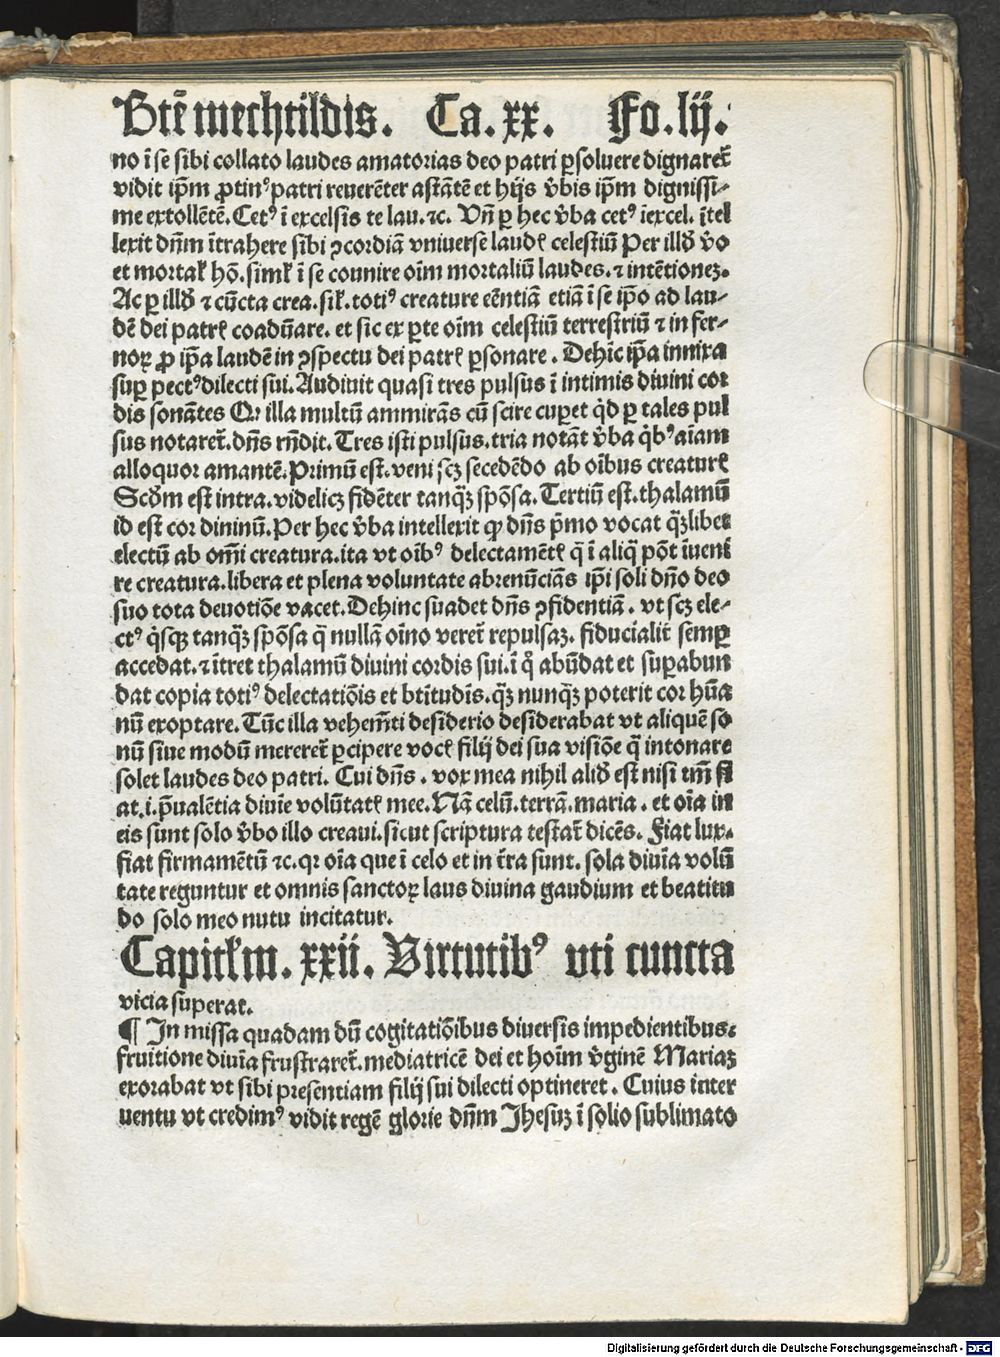 Btē mechtildis. Ca. xx. Fo. lij.
no ī se sibi collato laudes amatorias deo patri ꝑsoluere dignaret̄
vidit ip̄m ꝓtinꝰ patri reuerēter astātē et hijs v̄bis ip̄m dignissi-
me extollētē. Cetꝰ ī excelsis te lau. ⁊c. Vn̄ ꝑ hec v̄ba cetꝰ īexcel. ītel
lexit dn̄m ītrahere sibi ꝯcordiā vniuerse laudꝭ celestiū Per illđ v̄o
et mortaƚ hō. simƚ ī se counire oīm mortaliū laudes. ⁊ intētionez.
Ac ꝑ illđ ⁊ cūcta crea. siƚ. totiꝰ creature eēntiā etiā ī se ip̄o ad lau-
dē dei patrꝭ coadūare. et sic ex ꝑte oīm celestiū terrestriū ⁊ in fer-
noꝝ ꝓ ip̄a laudē in ꝯspectu dei patrꝭ ꝑsonare. Dehīc ip̄a innixa
suꝑ pectꝰ dilecti sui. Audiuit quasi tres pulsus ī intimis diuini cor
dis sonātes Qꝛ illa multū ammirās cū scire cuꝑet q̄d ꝑ tales pul
sus notaret̄. dn̄s rn̄dit. Tres isti pulsus. tria notāt v̄ba q̄bꝰ aīam
alloquor amantē. Primū est. veni scꝫ secedēdo ab oībus creaturꝭ
Scđm est intra. videlicꝫ fidēter tanq̄ꝫ spōsa. Tertiū est. thalamū
id est cor dininū. Per hec v̄ba intellexit ꝙ dn̄s p̄mo vocat q̄ꝫlibet
electū ab omī creatura. ita vt oībꝰ delectamētꝭ q̄ ī aliq̄ pōt īueni
re creatura. libera et plena voluntate abrenūciās ip̄i soli dn̄o deo
suo tota deuotiōe vacet. Dehinc suadet dn̄s ꝯfidentiā. vt scꝫ ele-
ctꝰ q̄sqꝫ tanq̄ꝫ spōsa q̄ nullā oīno veret̄ repulsaꝫ. fiducialit̄ semꝑ
accedat. ⁊ ītret thalamū diuini cordis sui. ī q̊ abūdat et suꝑabun
dat copia totiꝰ delectatiōis et btītudīs. q̄ꝫ nunq̄ꝫ poterit cor hūa
nū exoptare. Tūc illa vehemēti desiderio desiderabat vt aliquē so
nū siue modū mereret̄ ꝑcipere vocꝭ filij dei sua visiōe q̄ intonare
solet laudes deo patri. Cui dn̄s. vox mea nihil aliđ est nisi tm̄ fi
at. i. p̄ualētia diuīe volūtatꝭ mee. Nā celū. terrā. maria. et oīa in
eis sunt solo v̄bo illo creaui. sicut scriptura testat̄ dicēs. Fiat lux.
fiat firmamētū ⁊c. qꝛ oīa que ī celo et in t̄ra sunt. sola diuīa volū
tate reguntur et omnis sanctoꝝ laus diuina gaudium et beatitu
do solo meo nutu incitatur.
Capitƚm. xxii. Virtutibꝰ vti cuncta
vicia superat.
¶ In missa quadam dū cogitatiōibus diuersis impedientibus.
fruitione diuīa frustraret̄. mediatricē dei et hoīm v̄ginē Mariaꝫ
exorabat vt sibi presentiam filij sui dilecti optineret. Cuius inter
uentu vt credimꝰ vidit regē glorie dn̄m Jhesuꝫ ī solio sublimato
Digitalisierung gefördert durch die Deutsche Forschungsgemeinschaft - DFG